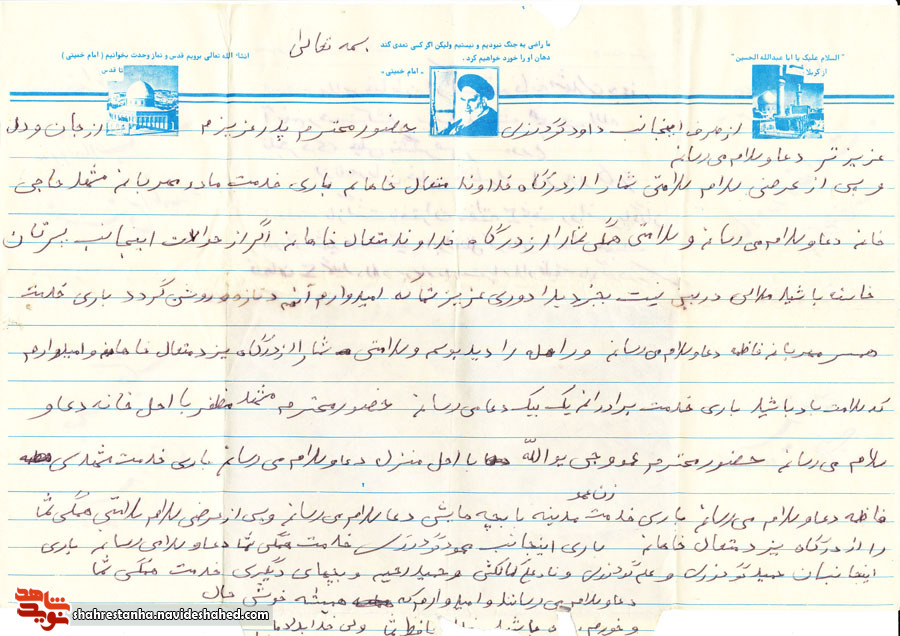 بسمه تعالی
ما راضی به جنگ نبودیم و نیستیم ولیکن اگر کسی تعدی کند
دهان او را خورد خواهیم کرد.
- امام خمینی -
"السلام علیک یا ابا عبدالله الحسین"
از کربلا
انشاء الله تعالی برویم قدس و نماز وحدت بخوانیم (امام خمینی)
تا قدس
از طرف اینجانب داود گودرزی حضور محترم پدر عزیزم از جان و دل
عزیزتر دعا و سلام می رسانم
و پس از عرضی سلام سلامتی شما را از درگاه خداوند متعال خاهانم باری خدمت مادر مهربانم مشهد حاجی
خانم دعا و سلام می رسانم و سلامتی همگی شمارا از درگاه خداوند متعال خاهانم اگر از حوالات اینجانب پسرتان
خاسته باشید ملالی در پس نیست بجز دیدا دوری عزیز شما که امیدوارم آنهم تازه و روشن گردد باری خدمت
همسر مهربانم فاطمه دعا و سلام می رسانم و از راه را دید بوسم و سلامتی شما را از درگاه یزد متعال خاهانم و امیدوارم
که سلامت باد باشید باری خدمت برادرانم یک بیک دعا می رسانم حضور محترم مشهد مظفر با اهل خانه دعا و
سلام می رسانم حضور محترم عمو وجی یدالله با اهل منزل دعا و سلام می رسانم باری خدمت مشهدی
فاطمه دعا و سلام می رسانم باری خدمت زن عمو مدینه با بچه هایش دعا سلام می رسانم و پس از عرضی سلام سلامتی همگی شما
را از درگاه یزد متعال خاهانم باری اینجانب محمود گودرزی خدمت همگی شما دعا و سلام می رسانم باری
اینجانبان حمید گودرزی و علی گودرزی و نادعلی و حمید رحیم و بچهای دیگری خدمت همگی شما
دعا و سلام می رسانند و امیدوارم که همیشه خوشی حال
و خورم باشید خدا حافظ شما
شاهد
نوید
shahrestanha.navideshahed.com